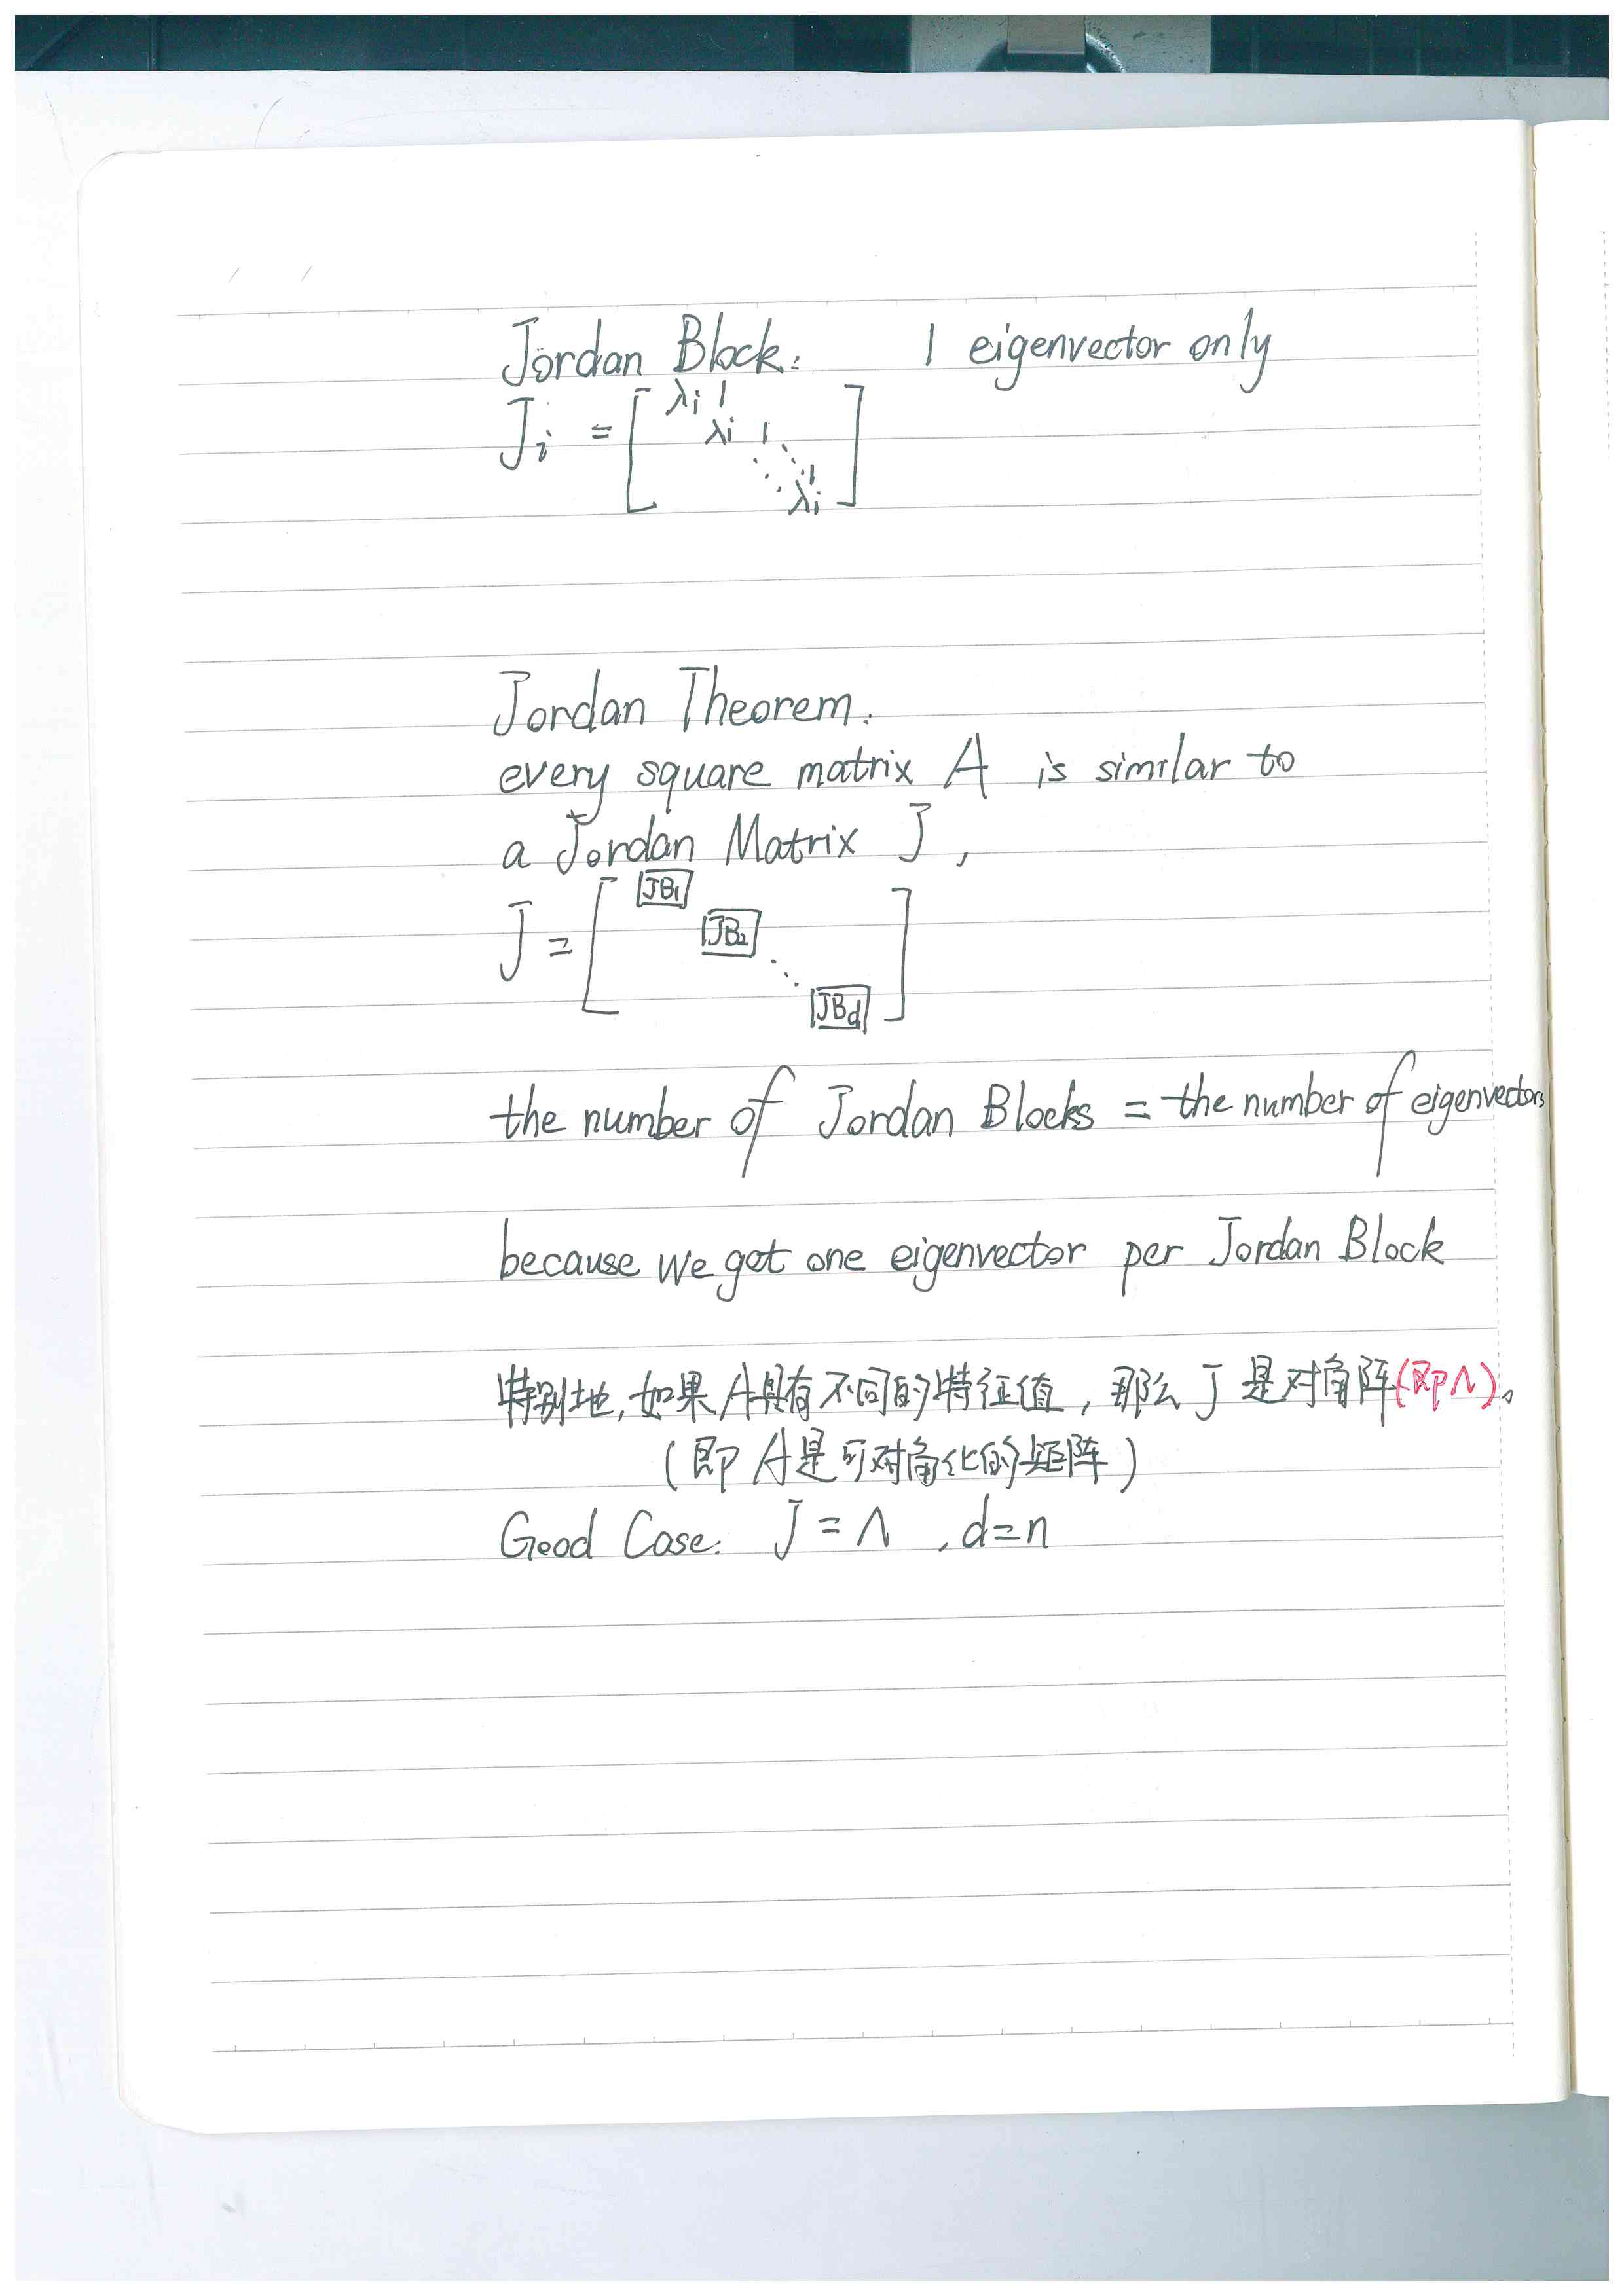 Jordan Block: 1 eigenvector only
J_i = [ λi 1
λi 1
⋱ ⋱ 1
λi ]
Jordan Theorem:
every square matrix A is similar to
a Jordan Matrix J,
J = [ JB₁
JB₂
⋱
JBd ]
the number of Jordan Blocks = the number of eigenvectors
because we get one eigenvector per Jordan Block
特别地,如果A具有不同的特征值,那么J是对角阵(即Λ)。
(即A是可对角化的矩阵)
Good Case: J = Λ , d=n